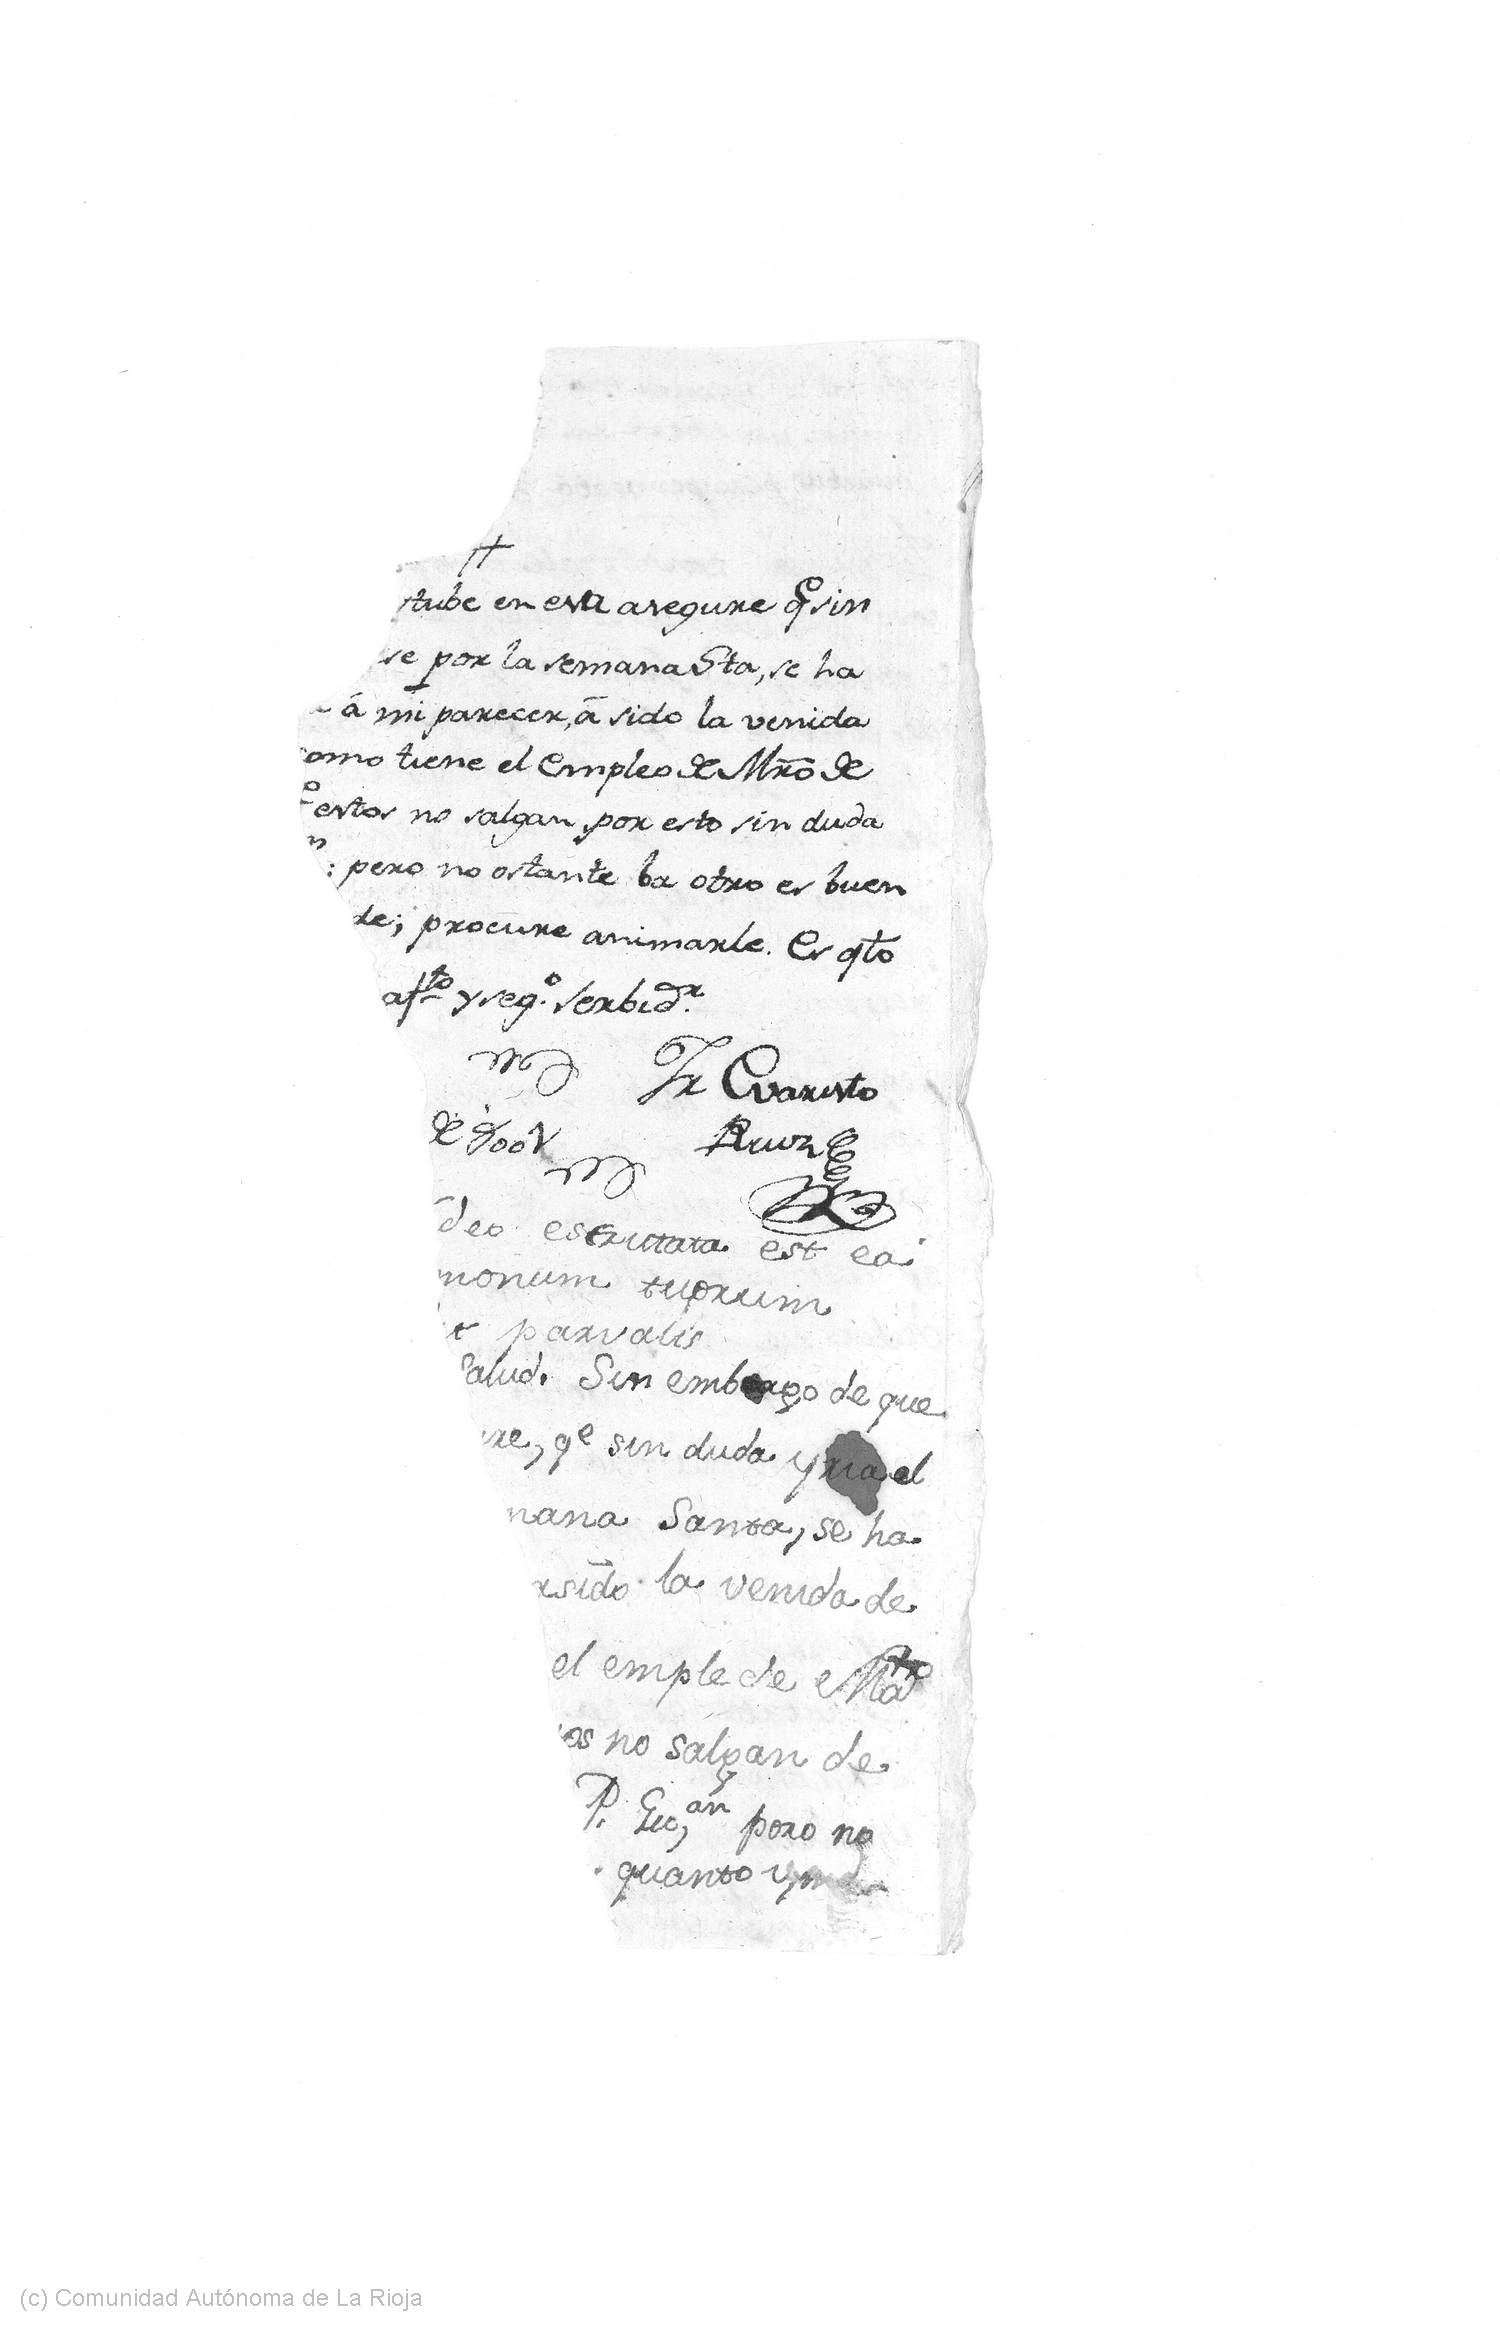 stube en esta asegure q.e sin
se por la semana Sta, se ha
á mi parecer, á sido la venida
como tiene el Empleo de Mrõ de
estos no salgan, por esto sin duda
n: pero no ostante ba otro es buen
de; procure animarle. Es qto
afto y sego. serbidr.
Fr Evaristo
de
Ruiz
deo escrutata est ea
monum tuorum
t parvalis
Salud. Sin embargo de que
re, qe sin duda yria el
mana Santa, se ha
sido la venida de
el emple de Mro
os no salgan de
P. Guan, pero no
quanto
(c) Comunidad Autónoma de La Rioja